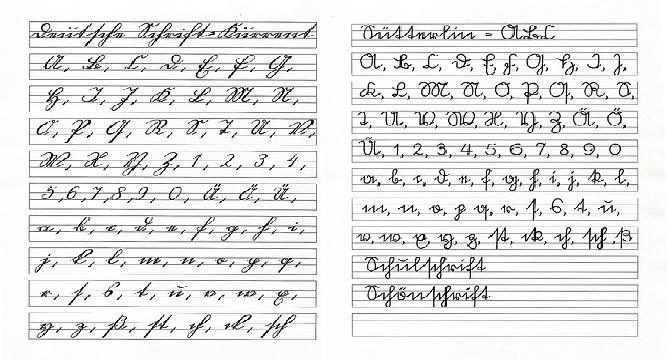 Deutsche Schrift=Kurrent
A, B, C, D, E, F, G,
H, I, J, K, L, M, N,
O, P, Q, R, S, T, U, V,
W, X, Y, Z, 1, 2, 3, 4,
5,6,7,8,9, 0, Ä, Ö, Ü,
a, b, c, d, e, f, g, h, i,
j, k, l, m, n, o, p, q,
r, ſ, s, t, u, v, w, x,
y, z, ß, st, ch, ck, sch
Sütterlin = ABC
A, B, C, D, E, F, G, H, I, J,
K, L, M, N, O, P, Q, R, S,
T, U, V, W, X, Y, Z, Ä, Ö,
Ü, 1, 2, 3, 4, 5, 6, 7, 8, 9, 0
a, b, c, d, e, f, g, h, i, j, k, l,
m, n, o, p, q, r, ſ, s, t, u,
v, w, x, y, z, st, ck, ch, sch, ß
Schulschrift
Schönschrift